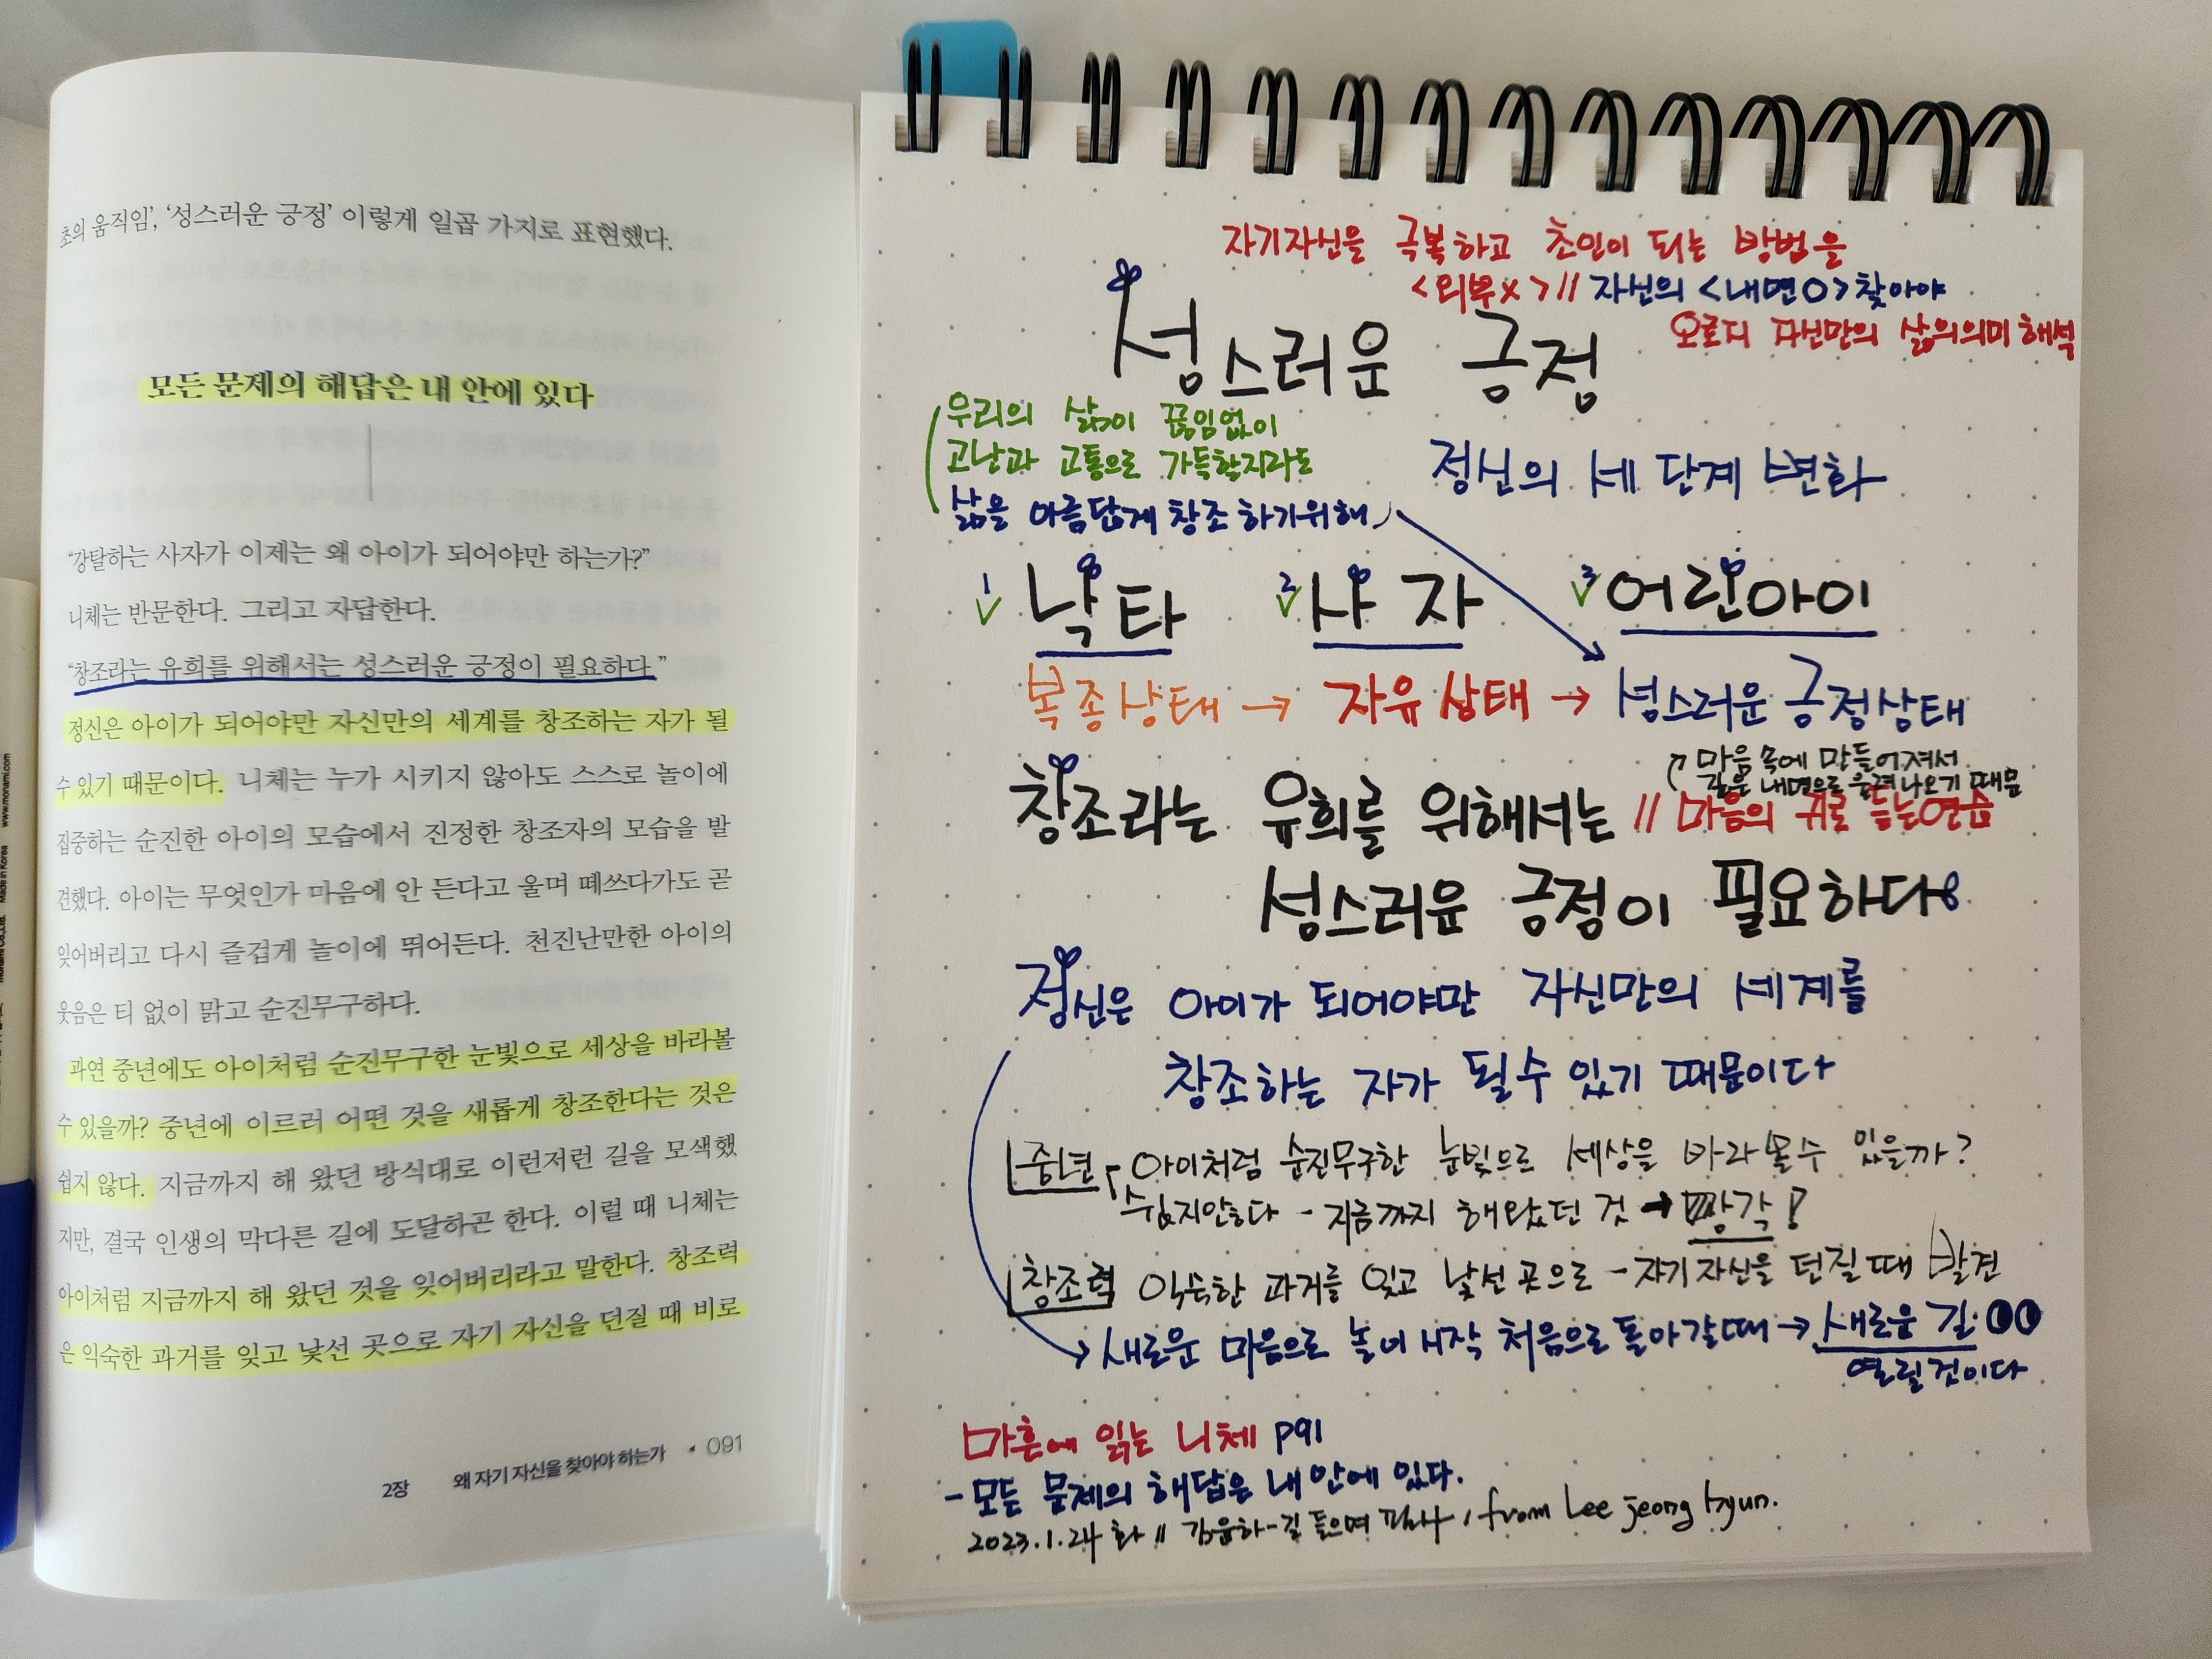 초의 움직임', '성스러운 긍정' 이렇게 일곱 가지로 표현했다.
모든 문제의 해답은 내 안에 있다
"강탈하는 사자가 이제는 왜 아이가 되어야만 하는가?"
니체는 반문한다. 그리고 자답한다.
"창조라는 유희를 위해서는 성스러운 긍정이 필요하다."
정신은 아이가 되어야만 자신만의 세계를 창조하는 자가 될
수 있기 때문이다. 니체는 누가 시키지 않아도 스스로 놀이에
집중하는 순진한 아이의 모습에서 진정한 창조자의 모습을 발
견했다. 아이는 무엇인가 마음에 안 든다고 울며 떼쓰다가도 곧
잊어버리고 다시 즐겁게 놀이에 뛰어든다. 천진난만한 아이의
웃음은 티 없이 맑고 순진무구하다.
과연 중년에도 아이처럼 순진무구한 눈빛으로 세상을 바라볼
수 있을까? 중년에 이르러 어떤 것을 새롭게 창조한다는 것은
쉽지 않다. 지금까지 해 왔던 방식대로 이런저런 길을 모색했
지만, 결국 인생의 막다른 길에 도달하곤 한다. 이럴 때 니체는
아이처럼 지금까지 해 왔던 것을 잊어버리라고 말한다. 창조력
은 익숙한 과거를 잊고 낯선 곳으로 자기 자신을 던질 때 비로
2장 왜 자기 자신을 찾아야 하는가 • 091
www.monami.com
Made in Korea
monami Co.,Ltd.
자기자신을 극복하고 초인이 되는 방법을
<외부x>// 자신의 <내면O>찾아야
오로지 자신만의 삶의의미 해석
성스러운 긍정
우리의 삶이 끊임없이
고난과 고통으로 가득할지라도
삶을 아름답게 창조하기위해
정신의 세 단계 변화
1 낙타 2 사자 3 어린아이
복종상태 → 자유상태 → 성스러운 긍정상태
마음 속에 만들어져서
깊은 내면으로 울려나오기 때문
창조라는 유희를 위해서는 // 마음의 귀로 듣는연습
성스러운 긍정이 필요하다
정신은 아이가 되어야만 자신만의 세계를
창조하는 자가 될수 있기 때문이다
중년 아이처럼 순진무구한 눈빛으로 세상을 바라볼수 있을까?
쉽지않다 - 지금까지 해왔던 것 → 망각!
창조력 익숙한 과거를 잊고 낯선 곳으로 - 자기자신을 던질때 발견
새로운 마음으로 놀이 시작 처음으로 돌아갈때 → 새로운 길
열릴것이다
마흔에 읽는 니체 P91
- 모든 문제의 해답은 내 안에 있다.
2023.1.24 화 // 김윤하-길 들으며 필사, from Lee jeong hyun.